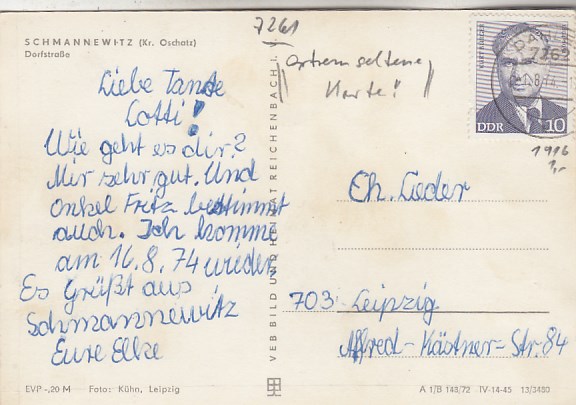 7261
SCHMANNEWITZ (Kr. Oschatz)
Dorfstraße
extrem seltene
Karte!
7262
DDR 10
1916
1,-
Liebe Tante
Lotti!
Wie geht es dir?
Mir sehr gut. Und
Onkel Fritz bestimmt
auch. Ich komme
am 16.8.74 wieder.
Es Grüßt aus
Schmannewitz
Eure Elke
VEB BILD UND HEIMAT REICHENBACH i.
Ch. Lieder
703 Leipzig
Alfred-Kästner-Str. 84
EVP -,20 M Foto: Kühn, Leipzig
A 1/B 148/72 IV-14-45 13/3480